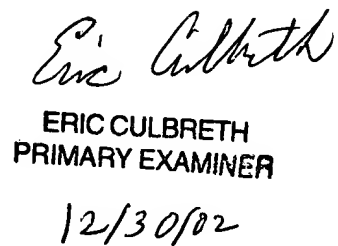 Eric Culbreth
ERIC CULBRETH
PRIMARY EXAMINER
12/30/02